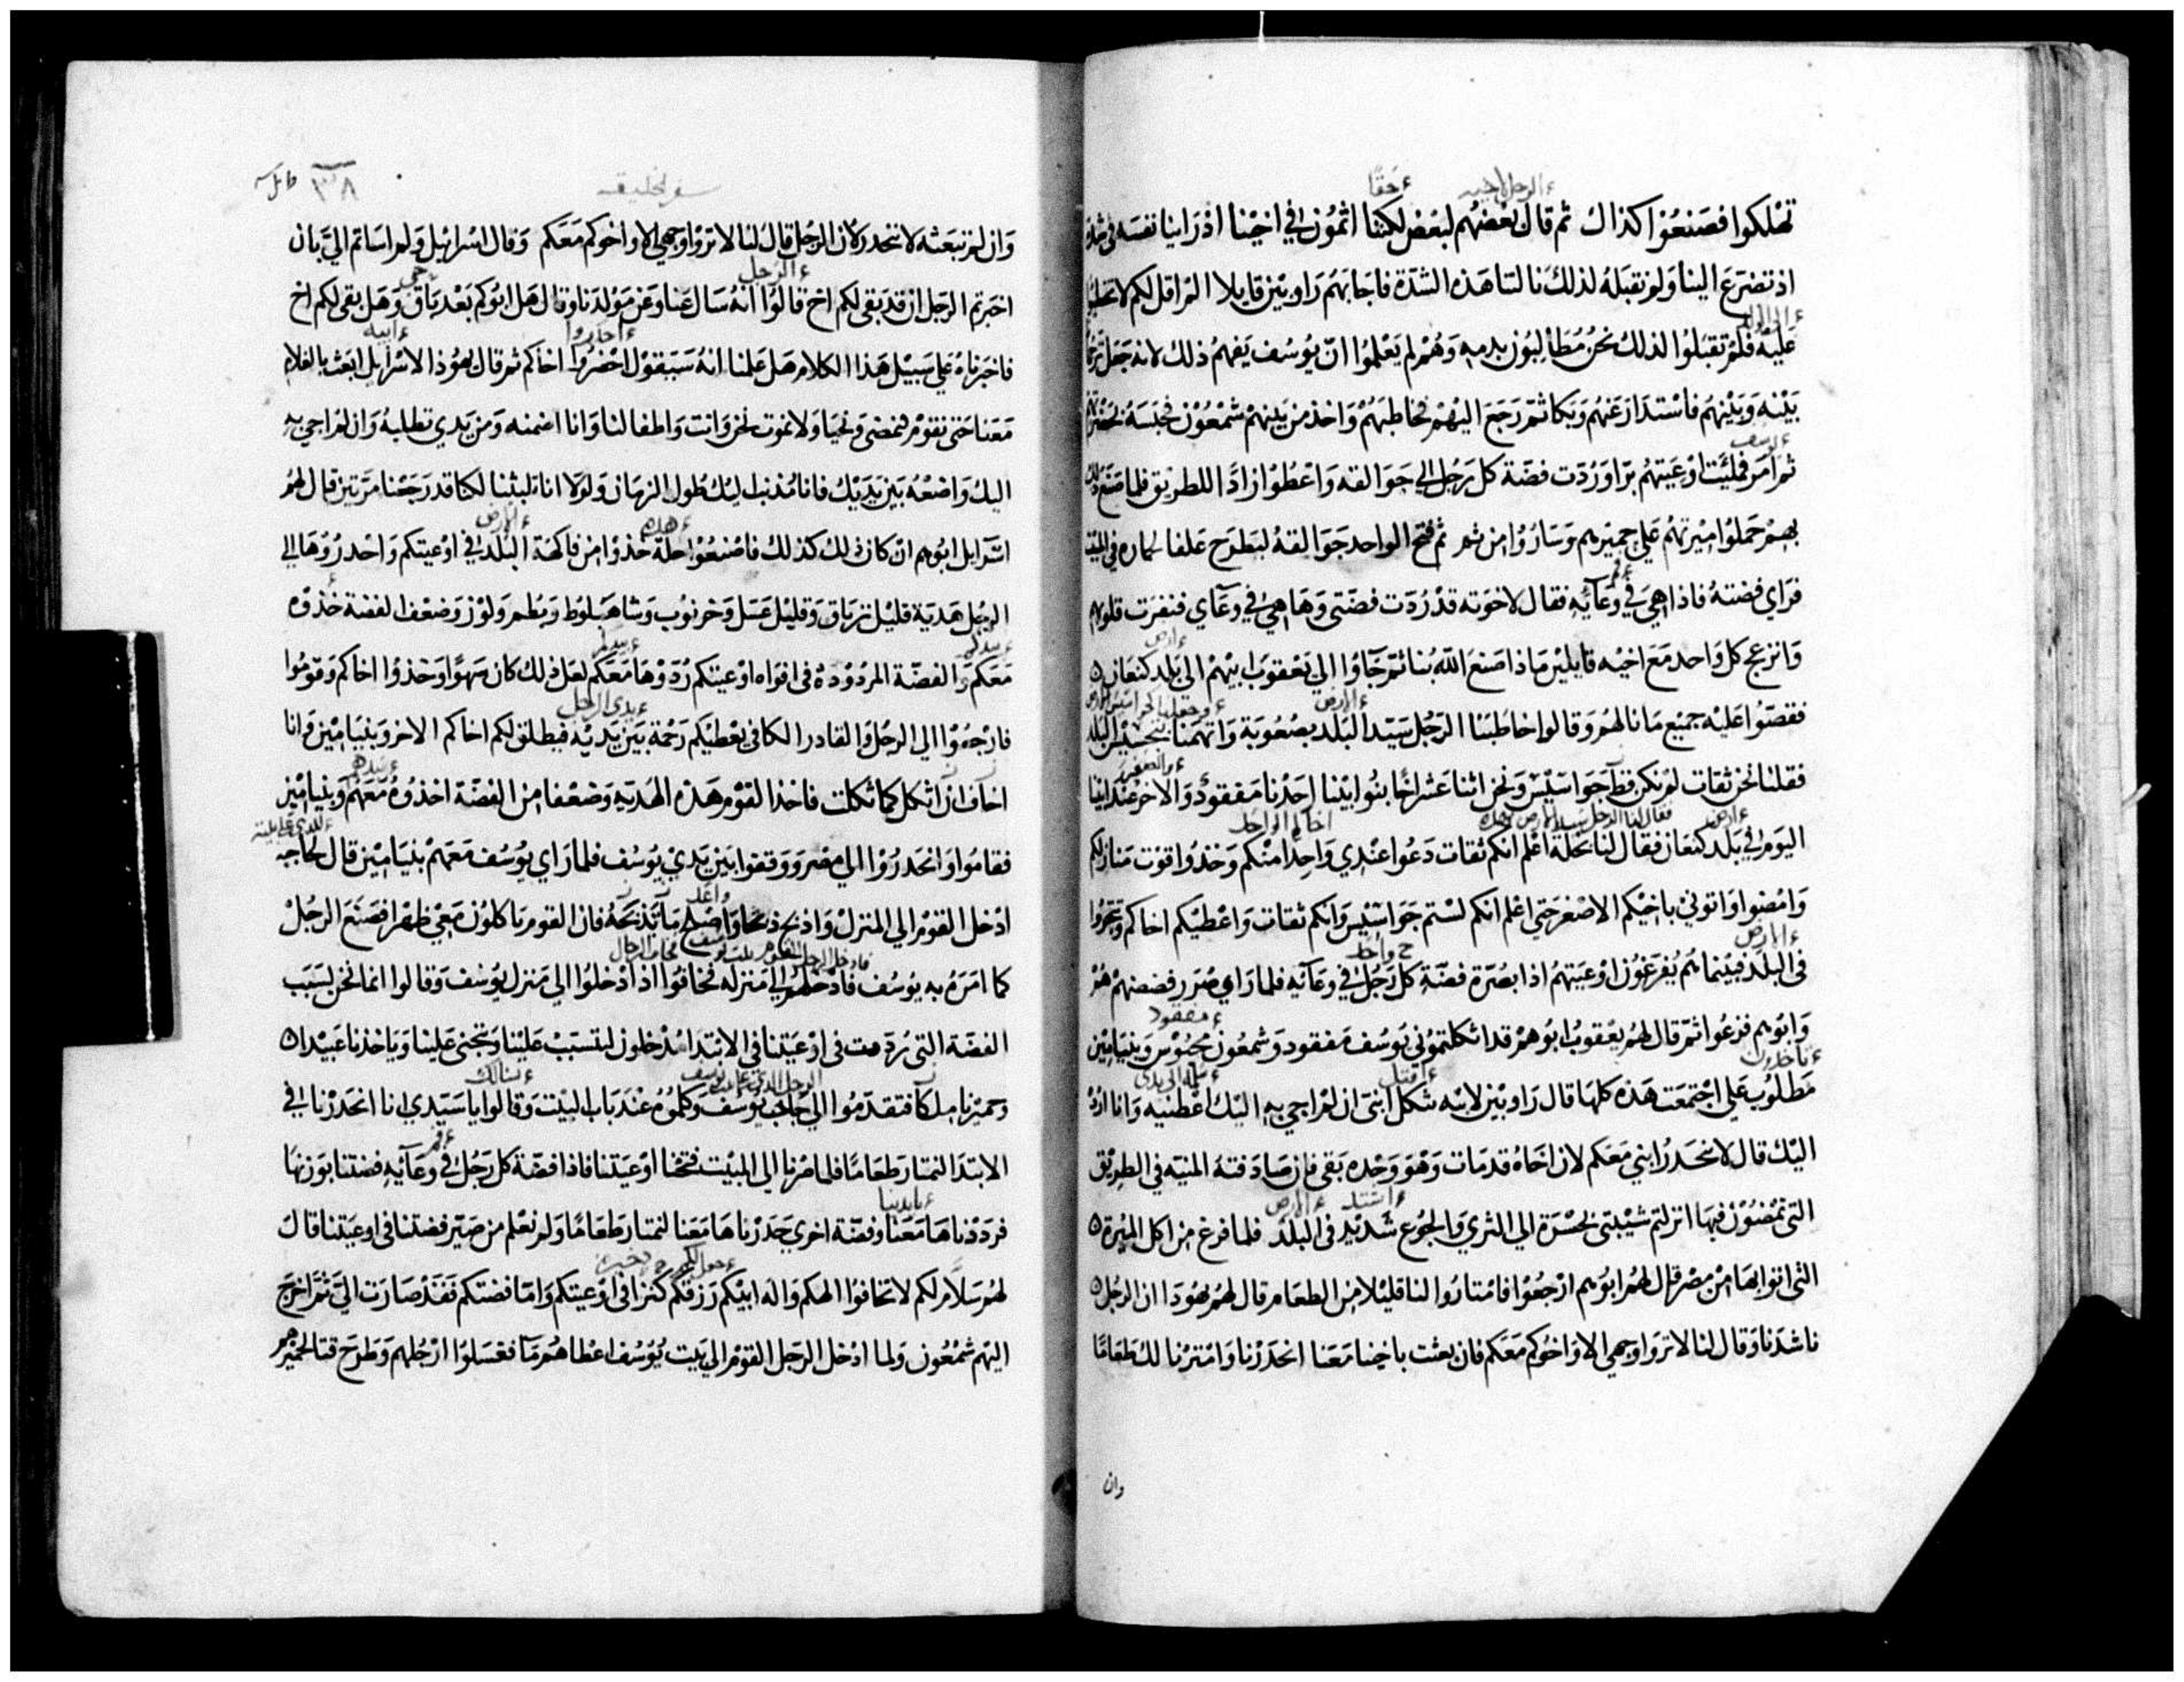 تهلكوا فصنعوا كذاك ثم قال بعضهم لبعض لكننا اثمون في اخينا اذ راينا نفسه في شدة
اذ تضرع الينا ولم نقبله لذلك نالتنا هذه الشدة فاجابهم راوبين قايلا الم اقل لكم لا تخطيوا
عليه فلم تقبلوا لذلك نحن مطالبون بدمه وهم لم يعلموا ان يوسف يفهم ذلك لانه جعل
بينه وبينهم فاستدار عنهم وبكا ثم رجع اليهم فخاطبهم واخذ من بينهم شمعون فحبسه
ثم امر فملئت اوعيتهم برا وردت فضة كل رجل الي جوالقه واعطوا زادا للطريق فلما صنع
بهم حملوا ميرتهم علي حميرهم وساروا من ثم ثم فتح الواحد جوالقه ليطرح علفا لحماره في المبيت
فراي فضته فاذا هي في وعايه فقال لاخوته قد ردت فضتي وها هي في وعاي فنفرت قلوبهم
وانزعج كل واحد مع اخيه قايلين ماذا صنع الله بنا ثم جاوا الي يعقوب ابيهم الي بلد كنعان
فقصوا عليه جميع ما نالهم وقالوا خاطبنا الرجل سيد البلد بصعوبة واتهمنا بتجسيس البلد
فقلنا نحن ثقات لم نكن قط جواسيس ونحن اثنا عشر اخا بنوا ابينا احدنا مفقود والاخر عند ابينا
اليوم في بلد كنعان فقال لنا بخلة اعلم انكم ثقات دعوا عندي واحدا منكم وخذوا قوت منازلكم
وامضوا واتوني باخيكم الاصغر حتي اعلم انكم لستم جواسيس وانكم ثقات واعطيكم اخاكم وتتجروا
في البلد فبينما هم يفرغون اوعيتهم اذا بصرة فضة كل رجل في وعايه فلما راي صرر فضضهم هم
وابوهم فزعوا ثم قال لهم يعقوب ابوهم قد اثكلتموني يوسف مفقود وشمعون محبوس وبنيامين
مطلوب علي اجتمعت هذه كلها قال راوبين لابيه ثكل ابني ان لم اجي به اليك اعطنيه وانا ارده
اليك قال لا ينحدر ابني معكم لان اخاه قد مات وهو وحده بقي فان صادفته المنيه في الطريق
التي تمضون فيها انزلتم شيبتي بحسرة الي الثري والجوع شديد في البلد فلما فرغ من اكل الميرة
التي اتوا بها من مصر قال لهم ابوهم ارجعوا فامتاروا لنا قليلا من الطعام قال لهم يهودا ان الرجل
ناشدنا وقال لنا لا تروا وجهي الا واخوكم معكم فان بعثت باخينا معنا انحدرنا وامترنا لك طعاما
وان
سفر الخليقه
٣٨
وان لم تبعثه لا ننحدر لان الرجل قال لنا لا تروا وجهي الا واخوكم معكم وقال اسرائيل ولم اساتم الي بان
اخبرتم الرجل ان قد بقي لكم اخ قالوا انه سال عنا وعن مولدنا وقال هل ابوكم بعد باق وهل بقي لكم اخ
فاخبرناه علي سبيل هذا الكلام هل علمنا انه سيقول احضروا اخاكم ثم قال يهوذا لاسرايل ابعث بالغلام
معنا حتي نقوم فنمضي ونحيا ولا نموت نحن وانت واطفالنا وانا اضمنه ومن يدي تطلبه وان لم اجي به
اليك واضعه بين يديك فانا مذنب اليك طول الزمان ولولا اننا تلبثنا لكنا قد رجعنا مرتين قال لهم
اسرايل ابوهم ان كان ذلك كذلك فاصنعوا خلة خذوا من فاكهة البلد في اوعيتكم واحدروها الي
الرجل هدية قليل ترياق وقليل عسل وخرنوب وشاهبلوط وبطم ولوز وضعف الفضة خذوه
معكم والفضة المردودة في افواه اوعيتكم ردوها معكم لعل ذلك كان سهوا وخذوا اخاكم وقوموا
فارجعوا الي الرجل والقادر الكافي يعطيكم رحمة بين يديه فيطلق لكم اخاكم الاخر وبنيامين وانا
اخاف ان اثكل كما ثكلت فاخذ القوم هذه الهدية وضعفا من الفضة اخذوه معهم وبنيامين
فقاموا وانحدروا الي مصر ووقفوا بين يدي يوسف فلما راي يوسف معهم بنيامين قال لحاجبه
ادخل القوم الي المنزل واذبح ذبحا واصلح ما تذبحه فان القوم ياكلون معي ظهرا فصنع الرجل
كما امره به يوسف فادخلهم الي منزله فخافوا اذ ادخلوا الي منزل يوسف وقالوا انما نحن بسبب
الفضة التي ردت في اوعيتنا في الابتدا مدخلون ليتسبب علينا ويتجني علينا وياخذنا عبيدا
وحميرنا ملكا فتقدموا الي حاجب يوسف وكلموه عند باب البيت وقالوا يا سيدي انا انحدرنا في
الابتدا لنمتار طعاما فلما صرنا الي المبيت فتحنا اوعيتنا فاذا فضة كل رجل في وعايه فضتنا بوزنها
فرددناها معنا وفضة اخري حدرناها معنا لنمتار طعاما ولم نعلم من صير فضتنا في اوعيتنا قال
لهم سلام لكم لا تخافوا الهكم واله ابيكم رزقكم كنزا في اوعيتكم واما فضتكم فقد صارت الي ثم اخرج
اليهم شمعون ولما ادخل الرجل القوم الي بيت يوسف اعطاهم ما فغسلوا ارجلهم وطرح قتا لحميرهم